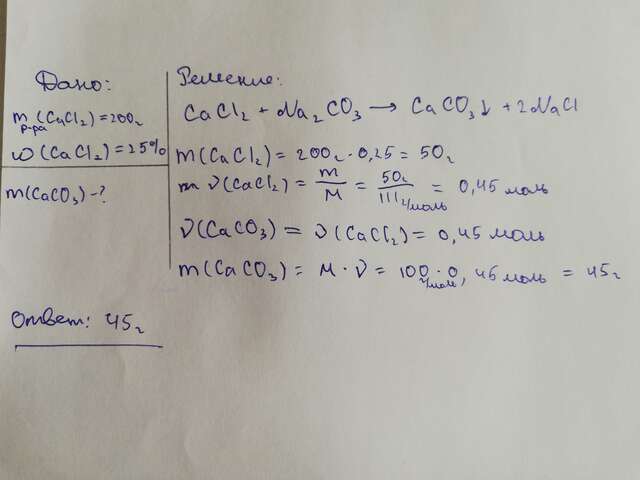 Дано:
m р-ра (CaCl₂) = 200г
ω (CaCl₂) = 25%
m(CaCO₃) - ?
Решение:
CaCl₂ + Na₂CO₃ → CaCO₃↓ + 2NaCl
m(CaCl₂) = 200г · 0,25 = 50г
ν(CaCl₂) = m/M = 50г/111г/моль = 0,45 моль
ν(CaCO₃) = ν(CaCl₂) = 0,45 моль
m(CaCO₃) = M · ν = 100 г/моль · 0,45 моль = 45г
Ответ: 45г